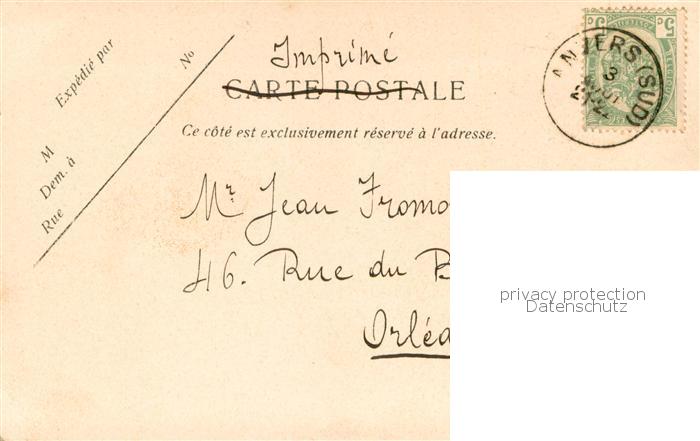 Imprimé
CARTE POSTALE
Ce côté est exclusivement réservé à l'adresse.
Expédié par
No
M
Dem. à
Rue
5 c 5 c
ANVERS (SUD)
3
Mr. Jean Fromo
46. Rue du B
Orléa
privacy protection
Datenschutz